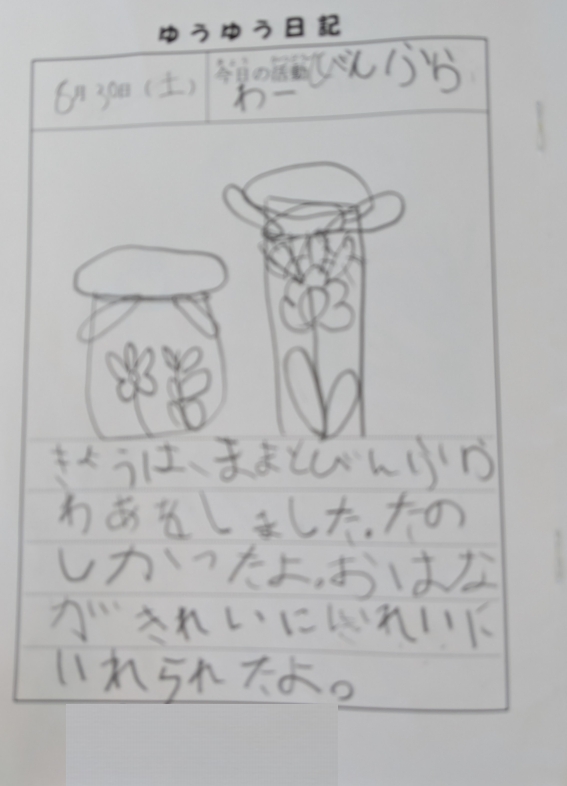 ゆうゆう日記
6月30日(土)
今日の活動 びんふらわー
きょうは、ままとびんふら
わあをしました。たの
しかったよ。おはな
がきれいに
いれられたよ。